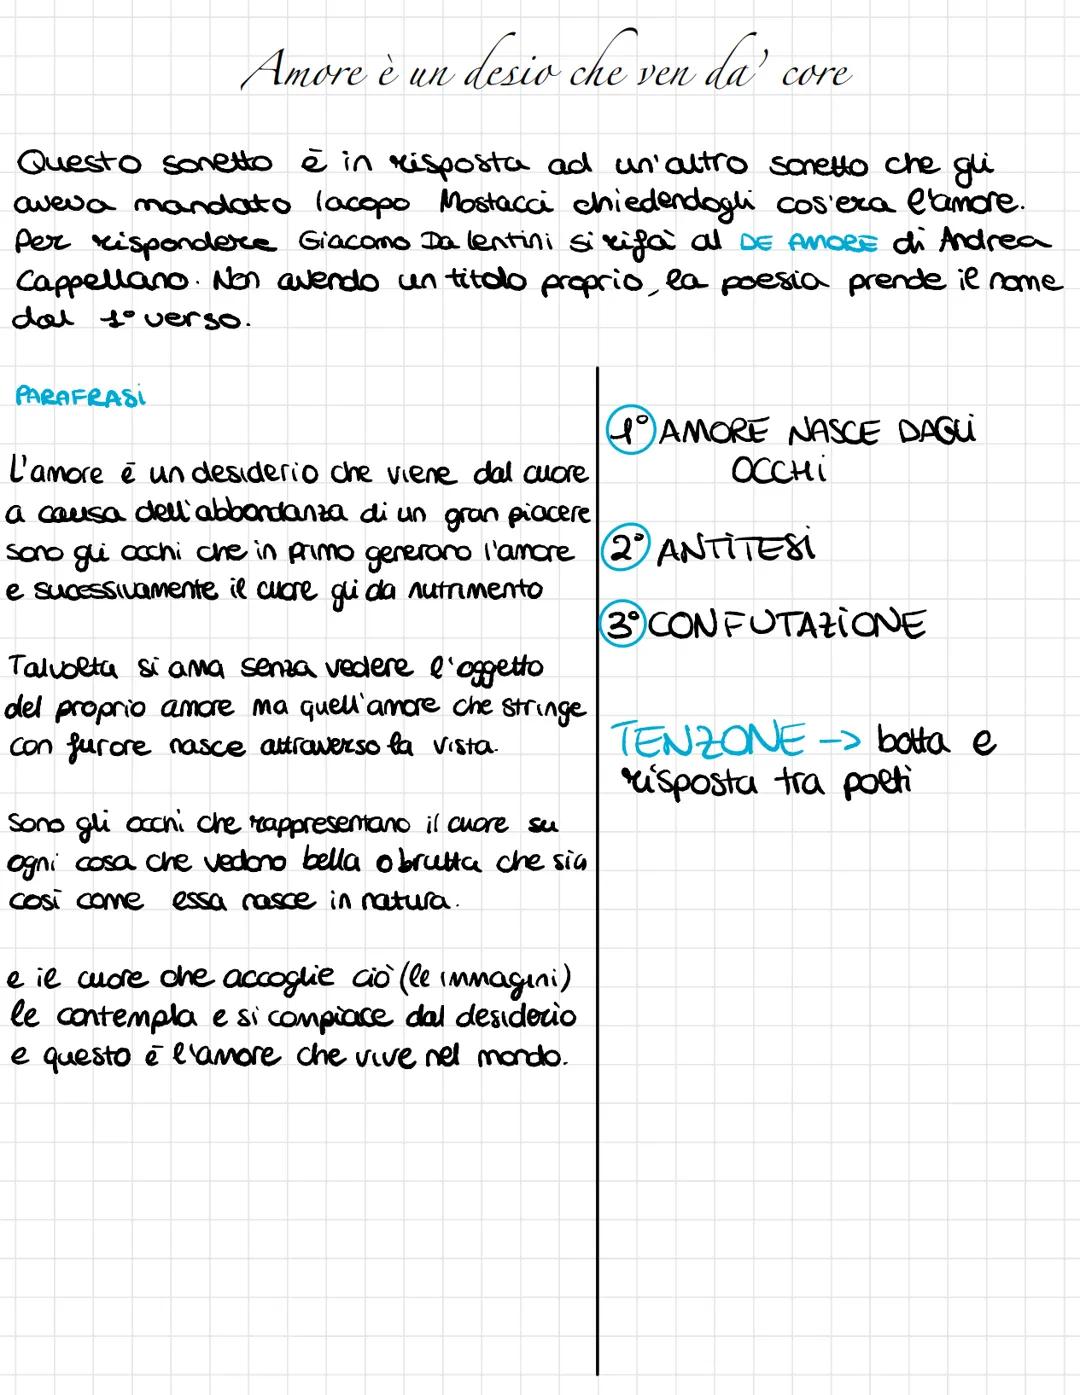 Amore è un desio che ven da' core
Questo sonetto è in risposta ad un'altro sonetto che gli
aveva mandato Iacopo Mostacci chiedendogli cos'era l'amore.
Per rispondere Giacomo Da lentini si rifà al DE AMORE di Andrea
Cappellano. Non avendo un titolo proprio, la poesia prende il nome
dal 1° verso.
PARAFRASI
L'amore è un desiderio che viene dal cuore
a causa dell'abbondanza di un gran piacere
sono gli occhi che in primo generano l'amore
e sucessivamente il cuore gli da nutrimento
Talvolta si ama senza vedere l'oggetto
del proprio amore ma quell'amore che stringe
con furore nasce attraverso la vista.
Sono gli occhi che rappresentano il cuore su
ogni cosa che vedono bella o brutta che sia
così come essa nasce in natura.
e il cuore che accoglie ciò (le immagini)
le contempla e si compiace dal desiderio
e questo è l'amore che vive nel mondo.
1° AMORE NASCE DAGLI
OCCHI
2° ANTITESI
3° CONFUTAZIONE
TENZONE -> botta e
risposta tra poeti